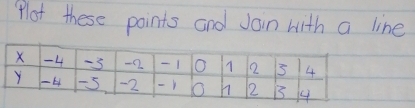 Plot these points and Join with a line
X -4 -3 -2 -1 0 1 2 3 4
Y -4 -3 -2 -1 0 1 2 3 4